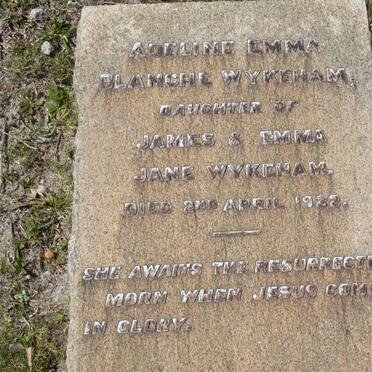 ADELINE EMMA
BLANCHE WYKEHAM,
DAUGHTER OF
JAMES & EMMA
JANE WYKEHAM.
DIED 2ND APRIL 1922.
SHE AWAITS THE RESURRECTI
MORN WHEN JESUS COME
IN GLORY.